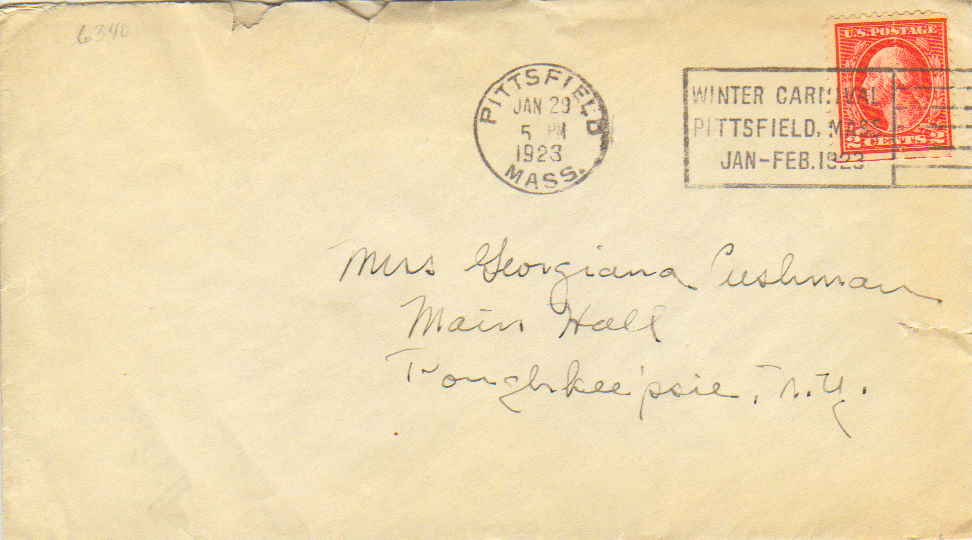 6340
U.S. POSTAGE
2 CENTS 2
PITTSFIELD
JAN 29
5 PM
1923
MASS.
WINTER CARNIVAL
PITTSFIELD, MASS
JAN-FEB. 1923
Mrs Georgiana Cushman
Main Hall
Poughkeepsie, N.Y.